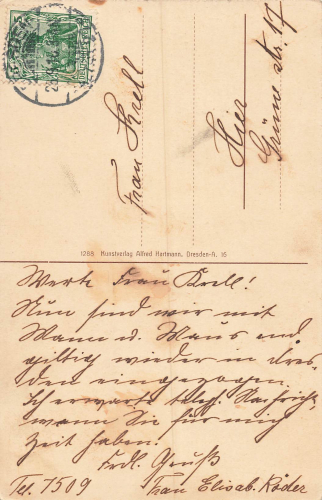 Frau Krell
Hier
Grüne str. 17
1288 Kunstverlag Alfred Hartmann, Dresden-A. 16
Werte Frau Krell!
Nun sind wir mit
Mann u. Maus end
giltig wieder in Dres-
den eingezogen.
Ich erwarte telef. Nachricht,
wann Sie für mich
Zeit haben.
Frdl. Gruß
Tel. 7509 Frau Elisab. Röder